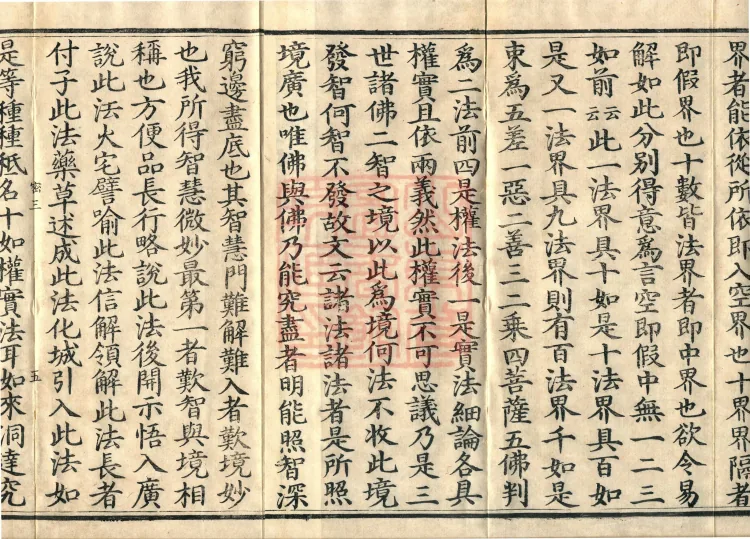 界者能依從所依即入空界也十界界隔者
即假界也十數皆法界者即中界也欲令易
解如此分別得意為言空即假中無一二三
如前云云此一法界具十如是十法界具百如
是又一法界具九法界則有百法界千如是
束為五差一惡二善三二乘四菩薩五佛判
為二法前四是權法後一是實法細論各具
權實且依兩義然此權實不可思議乃是三
世諸佛二智之境以此為境何法不收此境
發智何智不發故文云諸法諸法者是所照
境廣也唯佛與佛乃能究盡者明能照智深
窮邊盡底也其智慧門難解難入者歎境妙
也我所得智慧微妙最第一者歎智與境相
稱也方便品長行略說此法後開示悟入廣
說此法火宅譬喻此法信解領解此法長者
付子此法藥草述成此法化城引入此法如
密三 五
是等種種秖名十如權實法耳如來洞達究